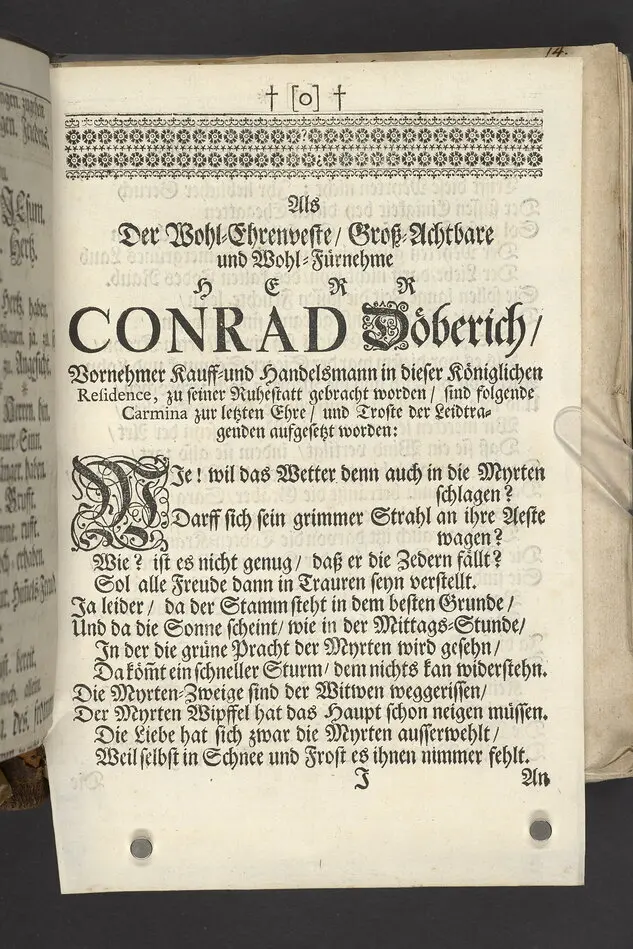 14.
† [o] †
Als
Der Wohl-Ehrenveste/ Groß-Achtbare
und Wohl-Fürnehme
HERR
CONRAD Döberich/
Vornehmer Kauff-und Handelsmann in dieser Königlichen
Residence, zu seiner Ruhestatt gebracht worden/ sind folgende
Carmina zur letzten Ehre/ und Troste der Leidtra-
genden aufgesetzt worden:
WJe! wil das Wetter denn auch in die Myrten
schlagen?
Darff sich sein grimmer Strahl an ihre Aeste
wagen?
Wie? ist es nicht genug/ daß er die Zedern fällt?
Sol alle Freude dann in Trauren seyn verstellt.
Ja leider/ da der Stamm steht in dem besten Grunde/
Und da die Sonne scheint/ wie in der Mittags-Stunde/
In der die grüne Pracht der Myrten wird gesehn/
Da köm̃t ein schneller Sturm/ dem nichts kan widerstehn.
Die Myrten-Zweige sind der Witwen weggerissen/
Der Myrten Wipffel hat das Haupt schon neigen müssen.
Die Liebe hat sich zwar die Myrten ausserwehlt/
Weil selbst in Schnee und Frost es ihnen nimmer fehlt.
J An